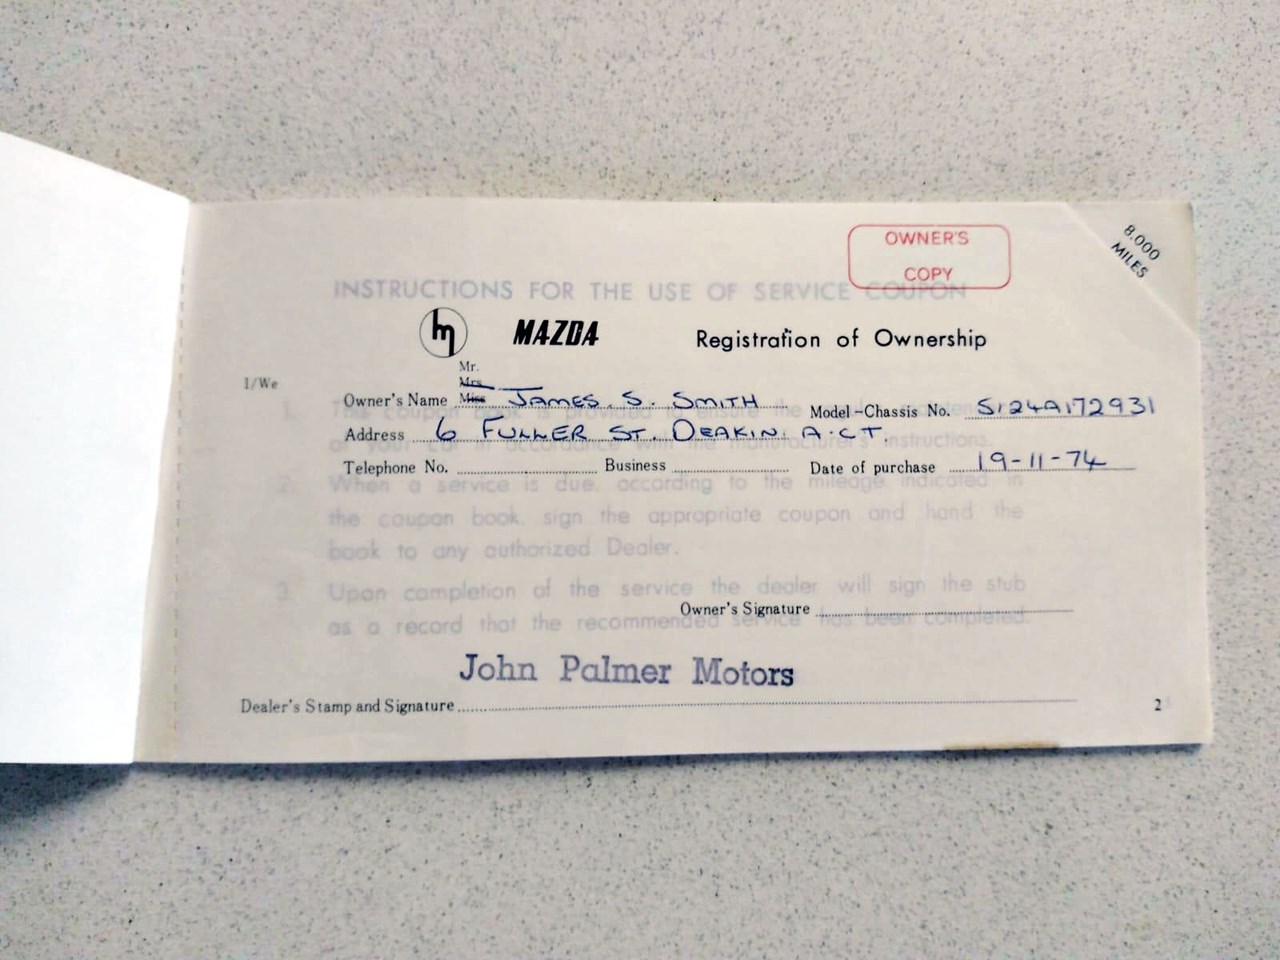 8.000
MILES
OWNER'S
COPY
INSTRUCTIONS FOR THE USE OF SERVICE COUPON
m MAZDA Registration of Ownership
Mr.
Mrs
I/We
Owner's Name Miss JAMES. S. SMITH Model-Chassis No. S124A172931
Address 6 FULLER ST. DEAKIN. A.C.T.
Telephone No. Business Date of purchase 19-11-74
1. This coupon book is provided to ensure the
of your car in accordance with the manufacturer's instructions.
2. When a service is due, according to the mileage indicated in
the coupon book, sign the appropriate coupon and hand the
book to any authorized Dealer.
3. Upon completion of the service the dealer will sign the stub
Owner's Signature
as a record that the recommended service has been completed.
John Palmer Motors
Dealer's Stamp and Signature
2